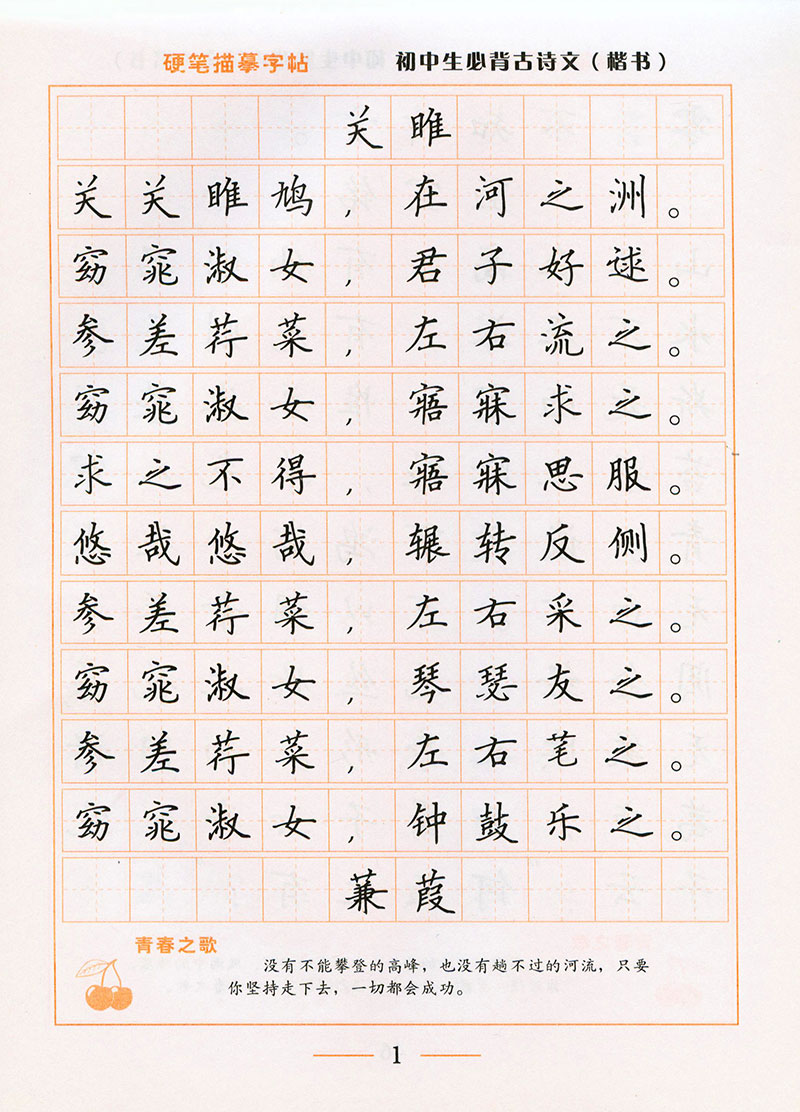 硬笔描摹字帖 初中生必背古诗文（楷书）
关雎
关关雎鸠，在河之洲。
窈窕淑女，君子好逑。
参差荇菜，左右流之。
窈窕淑女，寤寐求之。
求之不得，寤寐思服。
悠哉悠哉，辗转反侧。
参差荇菜，左右采之。
窈窕淑女，琴瑟友之。
参差荇菜，左右芼之。
窈窕淑女，钟鼓乐之。
蒹葭
青春之歌
没有不能攀登的高峰，也没有趟不过的河流，只要
你坚持走下去，一切都会成功。
1